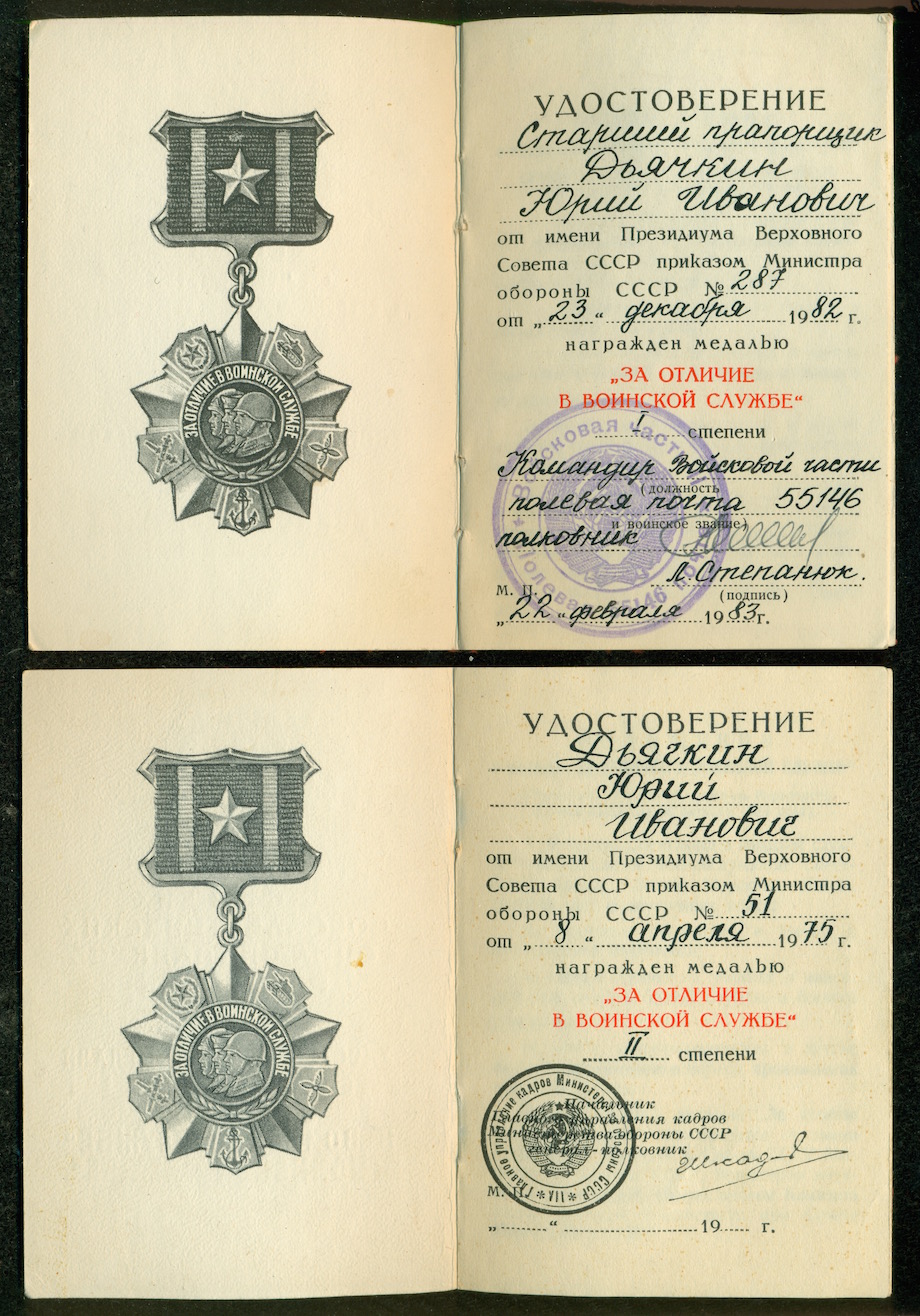 ЗА ОТЛИЧИЕ В ВОИНСКОЙ СЛУЖБЕ
УДОСТОВЕРЕНИЕ
Старший прапорщик
Дьячкин
Юрий Иванович
от имени Президиума Верховного
Совета СССР приказом Министра
обороны СССР № 287
от „23“ декабря 1982 г.
награжден медалью
„ЗА ОТЛИЧИЕ
В ВОИНСКОЙ СЛУЖБЕ“
I степени
Командир Войсковой части
(должность
полевая почта 55146
и воинское звание)
полковник
Л. Степанюк.
М. П. (подпись)
„22“ февраля 1983 г.
Войсковая часть
Полевая 55146
ЗА ОТЛИЧИЕ В ВОИНСКОЙ СЛУЖБЕ
УДОСТОВЕРЕНИЕ
Дьячкин
Юрий
Иванович
от имени Президиума Верховного
Совета СССР приказом Министра
обороны СССР № 51
от „8“ апреля 1975 г.
награжден медалью
„ЗА ОТЛИЧИЕ
В ВОИНСКОЙ СЛУЖБЕ“
II степени
Начальник
Главного управления кадров
Министерства обороны СССР
генерал-полковник
М. П.
„ “ 19 г.
Главное управление кадров Министерства обороны СССР